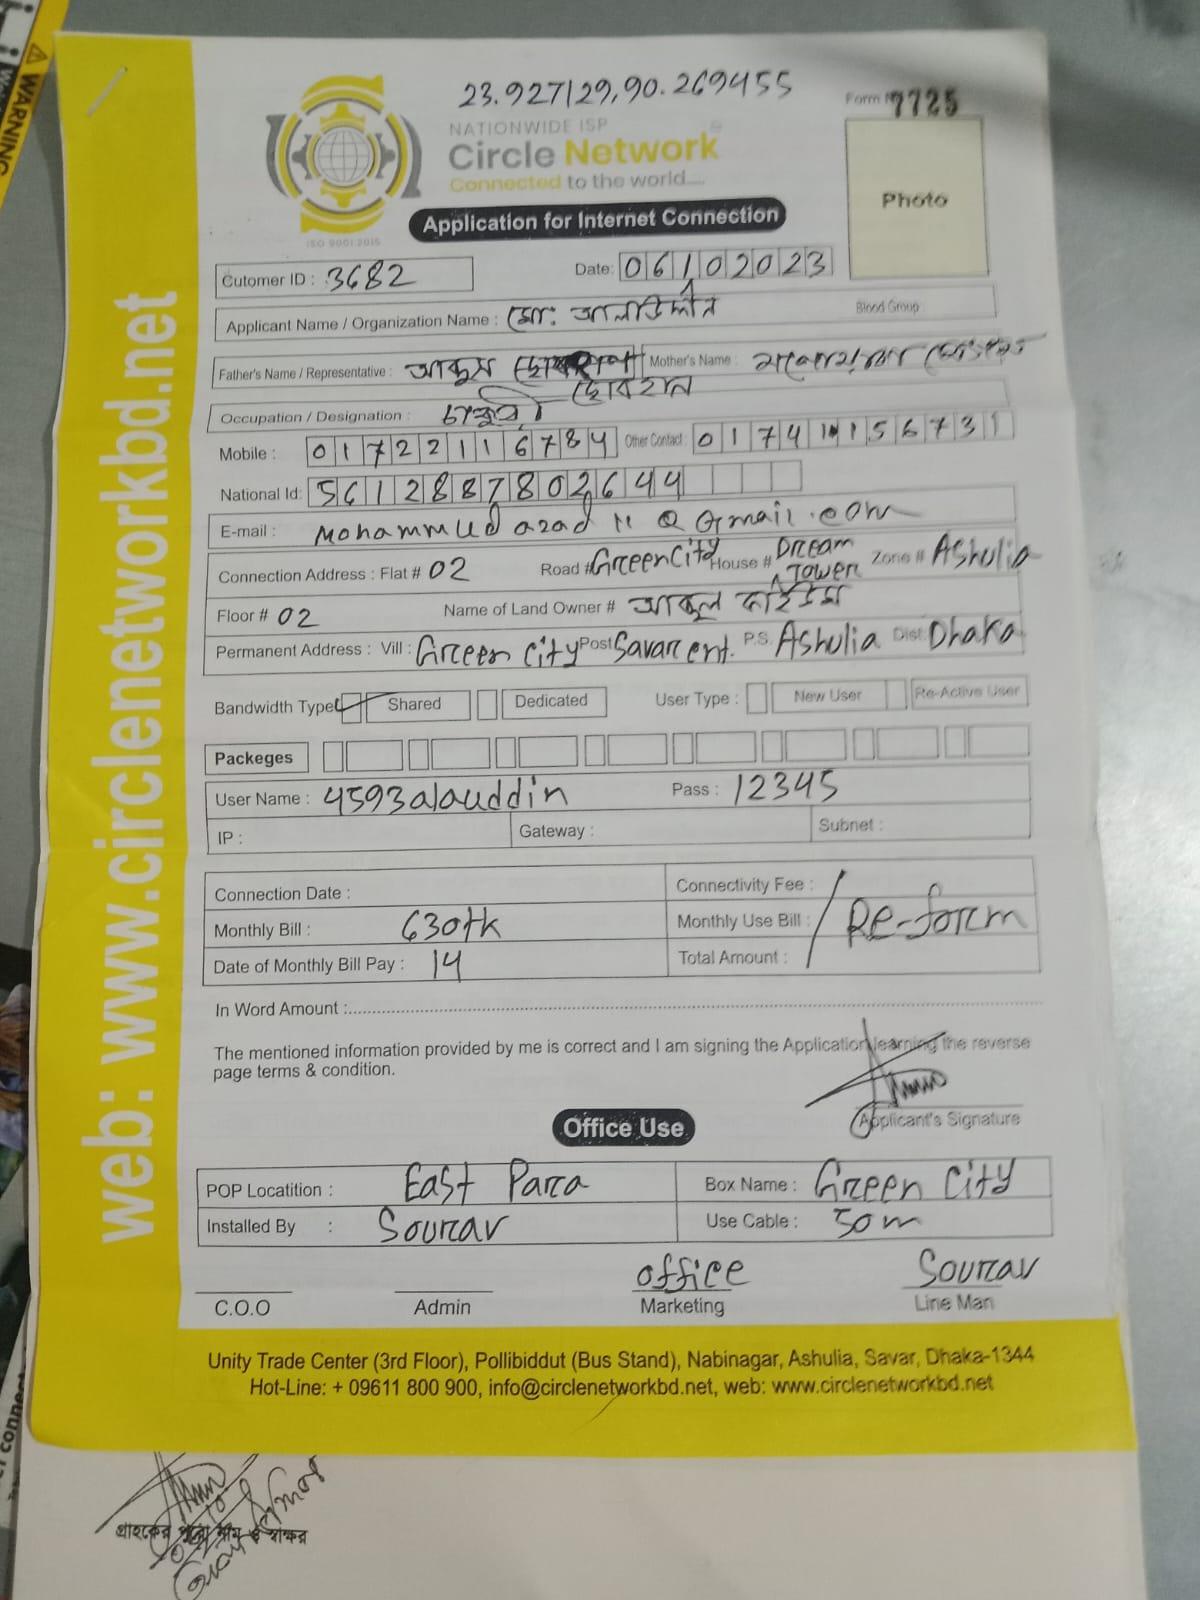 23.927129,90.269455
Form N 7725
NATIONWIDE ISP
Circle Network
Connected to the world....
ISO 9001:2015
Photo
Application for Internet Connection
Cutomer ID : 3682 Date: 06102023
Applicant Name / Organization Name : মো: আলাউদ্দীন Blood Group :
Father's Name / Representative : Mother's Name :
ছোবহান
Occupation / Designation :
Mobile : 01722116784 Other Contact : 01741156731
National Id: 5612887802644
E-mail : @Gmail.com
Connection Address : Flat # 02 Road # Green City House # Dream Tower Zone # Ashulia
Floor # 02 Name of Land Owner #
Permanent Address : Vill : Green City Post Savar cnt. P.S. Ashulia Dist. Dhaka
Bandwidth Type Shared Dedicated User Type : New User Re-Active User
Packeges
User Name : 4593alauddin Pass : 12345
IP : Gateway : Subnet :
Connection Date : Connectivity Fee :
Monthly Bill : 630tk Monthly Use Bill : Re-form
Date of Monthly Bill Pay : 14 Total Amount :
In Word Amount :
The mentioned information provided by me is correct and I am signing the Application learning the reverse
page terms & condition.
Applicant's Signature
Office Use
POP Locatition : East Para Box Name : Green City
Installed By : Sourav Use Cable : 50m
office Sourav
C.O.O Admin Marketing Line Man
Unity Trade Center (3rd Floor), Pollibiddut (Bus Stand), Nabinagar, Ashulia, Savar, Dhaka-1344
Hot-Line: + 09611 800 900, info@circlenetworkbd.net, web: www.circlenetworkbd.net
web: www.circlenetworkbd.net
WARNING
গ্রাহকের পুরো নাম ও স্বাক্ষর